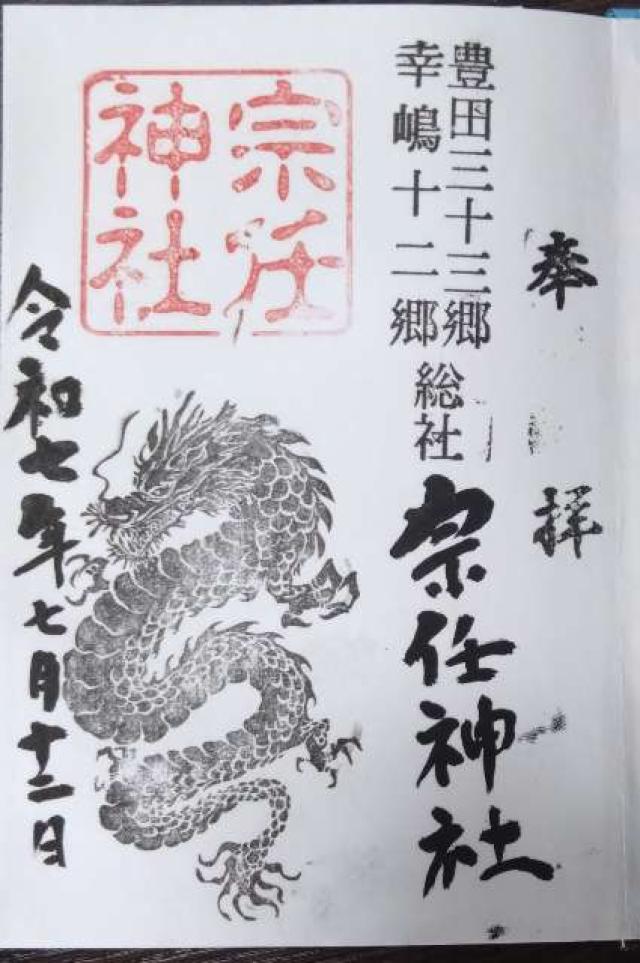 奉拝
豊田三十三郷
幸嶋十二郷
総社
宗任神社
宗任
神社
令和七年七月十二日